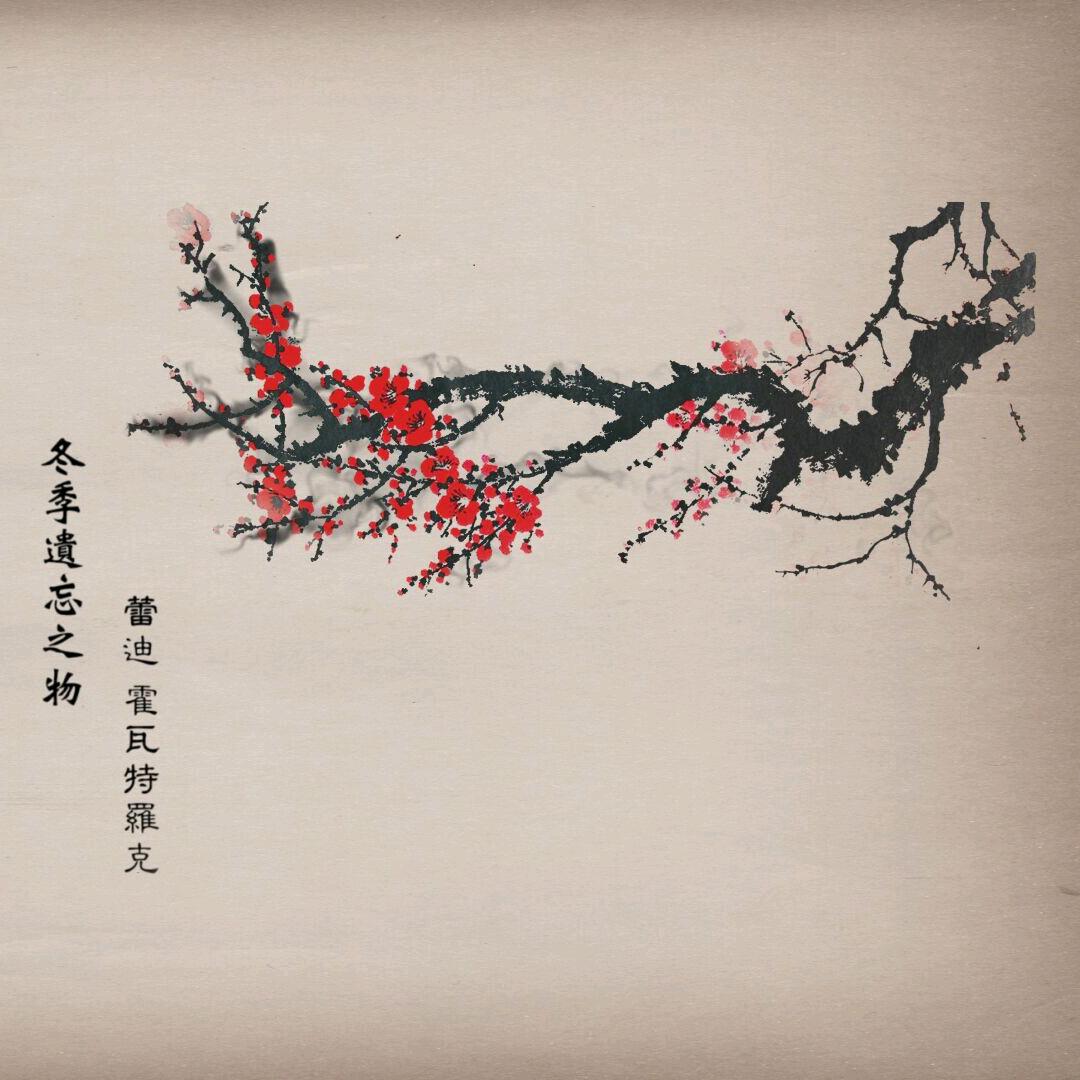 冬季遺忘之物
蕾迪 霍瓦特羅克